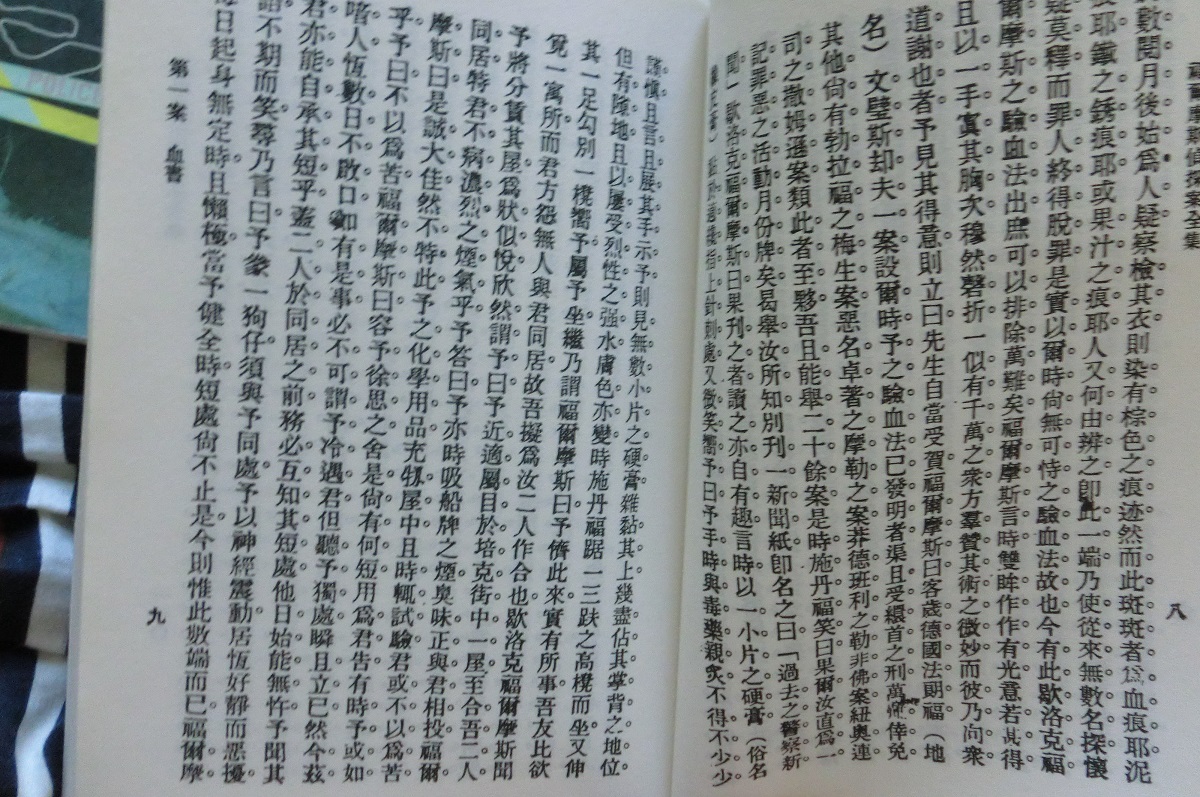 數閱月後始爲人疑察檢其衣則染有棕色之痕迹然而此斑斑者爲血痕耶泥
痕耶鐵之銹痕耶或果汁之痕耶人又何由辨之卽此一端乃使從來無數名探懷
疑莫釋而罪人終得脫罪是實以爾時尙無可恃之驗血法故也今有此歇洛克福
爾摩斯之驗血法出庶可以排除萬難矣福爾摩斯言時雙眸作作有光意若甚得
且以一手寘其胸次穆然磬折一似有千萬之衆方羣贊其術之微妙而彼乃向衆
道謝也者予見其得意則立曰先生自當受賀福爾摩斯曰客歲德國法朗福（地
名）文壁斯却夫一案設爾時予之驗血法已發明者渠且受繯首之刑萬無倖免
其他尙有勃拉福之梅生案惡名卓著之摩勒之案莽德班利之勒非佛案紐奥連
司之撒姆遜案類此者至夥吾且能舉二十餘案是時施丹福笑曰果爾汝直爲一
記罪惡之活動月份牌矣曷舉汝所知別刊一新聞紙卽名之曰「過去之警察新
聞」歇洛克福爾摩斯曰果刊之者讀之亦自有趣言時以一小片之硬膏（俗名
指上針刺處又微笑嚮予曰予手時與毒藥親炙不得不少少
八
謹愼且言且展其手示予則見無數小片之硬膏雜黏其上幾盡佔其掌背之地位
但有隙地且以屢受烈性之强水膚色亦變時施丹福踞一三趺之高櫈而坐又伸
其一足勾別一櫈嚮予屬予坐繼乃謂福爾摩斯曰予儕此來實有所事吾友比欲
覓一寓所而君方怨無人與君同居故吾擬爲汝二人作合也歇洛克福爾摩斯聞
予將分賃其屋爲狀似悅欣然謂予曰予近適屬目於培克街中一屋至合吾二人
同居特君不病濃烈之煙氣乎予答曰予亦時吸船牌之煙臭味正與君相投福爾
摩斯曰是誠大佳然不特此予之化學用品充牣屋中且時輒試驗君或不以爲苦
乎予曰不以爲苦福爾摩斯曰容予徐思之舍是尙有何短用爲君告有時予或如
喑人恆數日不啟口如有是事必不可謂予冷遇君但聽予獨處瞬且立已然今茲
君亦能自承其短乎蓋二人於同居之前務必互知其短處他日始能無忤予聞其
語不期而笑尋乃言曰予豢一狗仔須與予同處予以神經震動居恆好靜而惡擾
每日起身無定時且懶極當予健全時短處尙不止是今則惟此數端而已福爾摩
第一案 血書
九